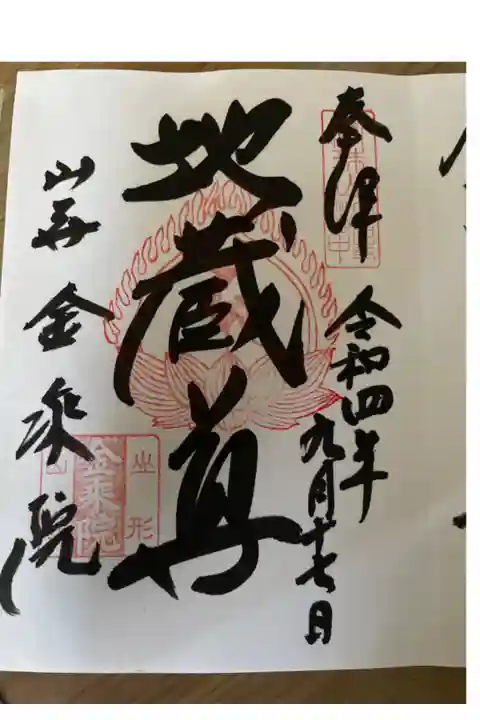 奉拝
令和四年九月十七日
地蔵尊
山形 金乗院
山形
金乗院